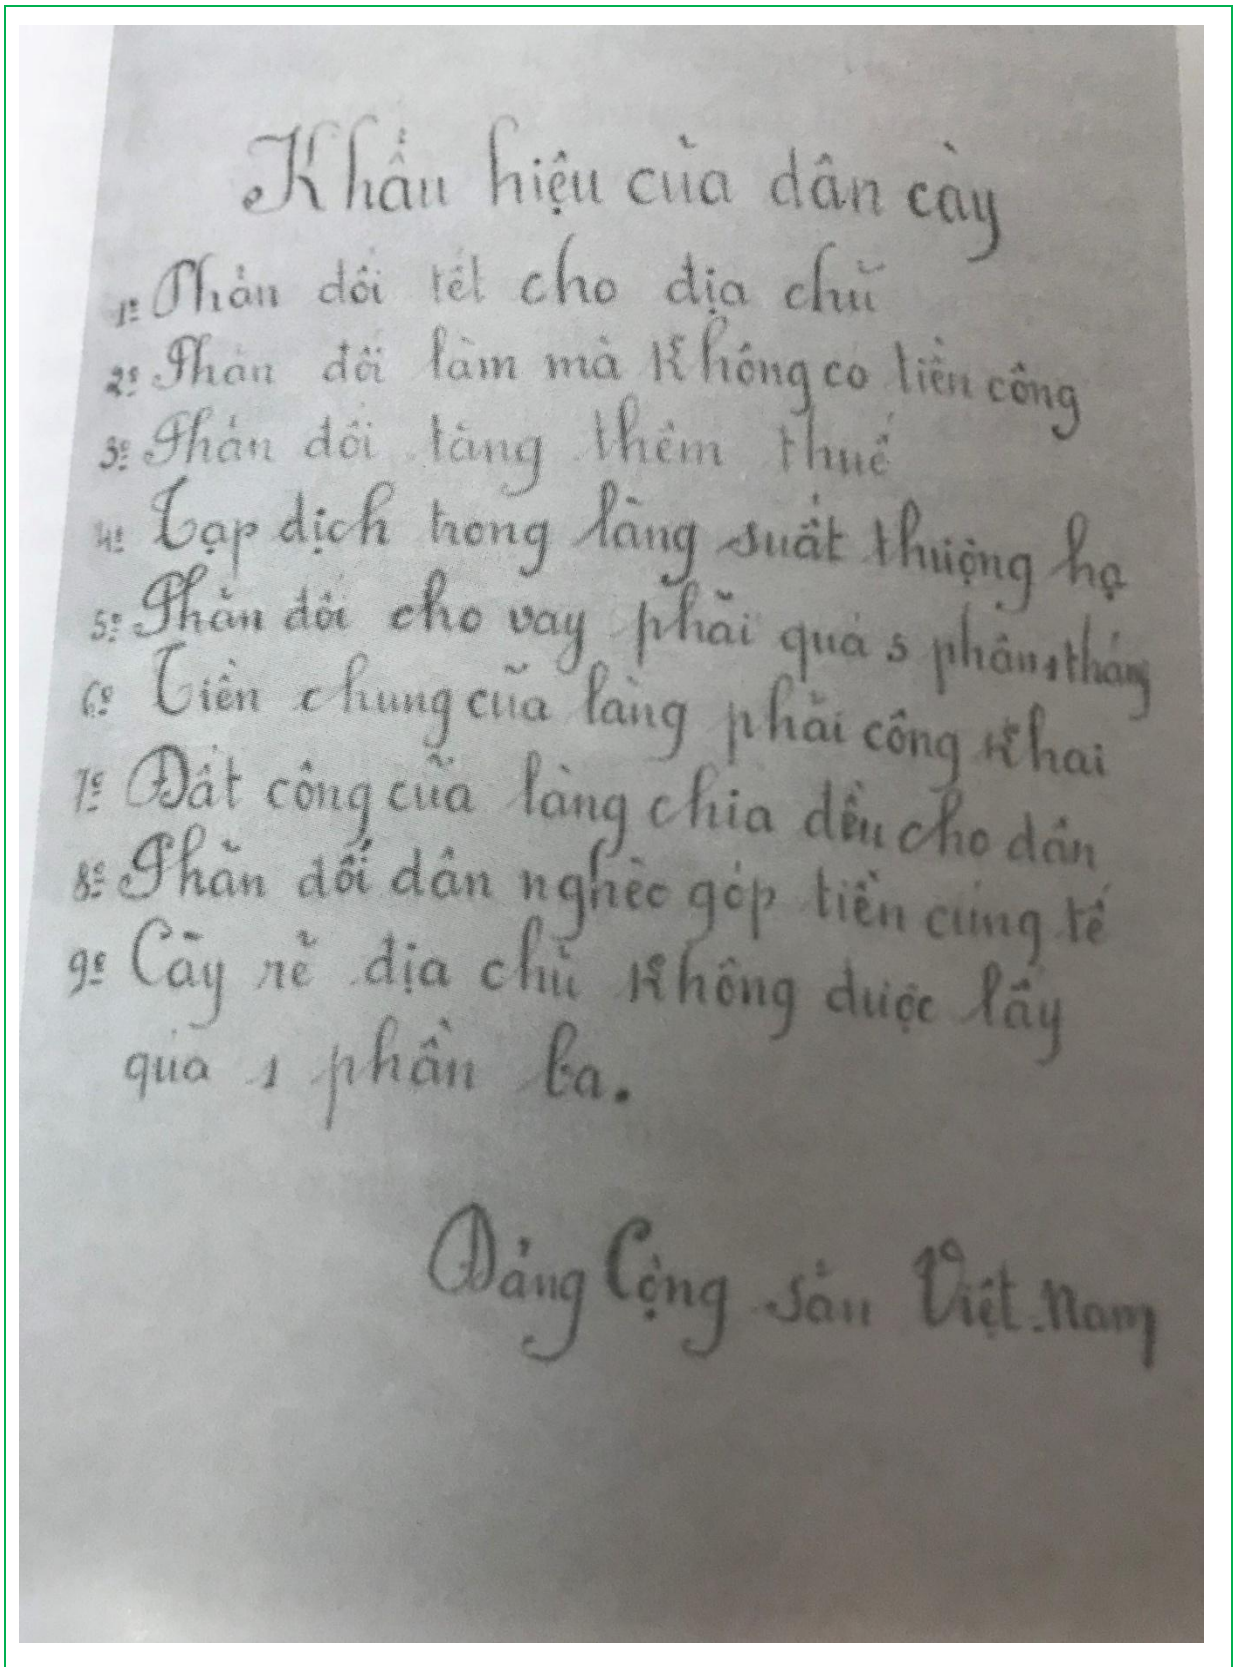 Khẩu hiệu của dân cày
1º Phản đối tết cho địa chũ
2º Phản đối làm mà Không co tiền công
3º Phản đối tăng thêm thuế
4º Tạp dịch trong làng suất thượng hạ
5º Phãn đối cho vay phãi quá 5 phân 1 tháng
6º Tiền chung cũa làng phải công Khai
7º Đất công cũa làng chia đều cho dân
8º Phãn đối dân nghèo góp tiền cúng tế
9º Cày rẽ địa chủ Không được lấy
quá 1 phần ba.
Đảng Cộng sản Việt-Nam